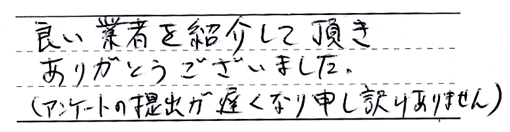 良い業者を紹介して頂き
ありがとうございました。
(アンケートの提出が遅くなり申し訳ありません)